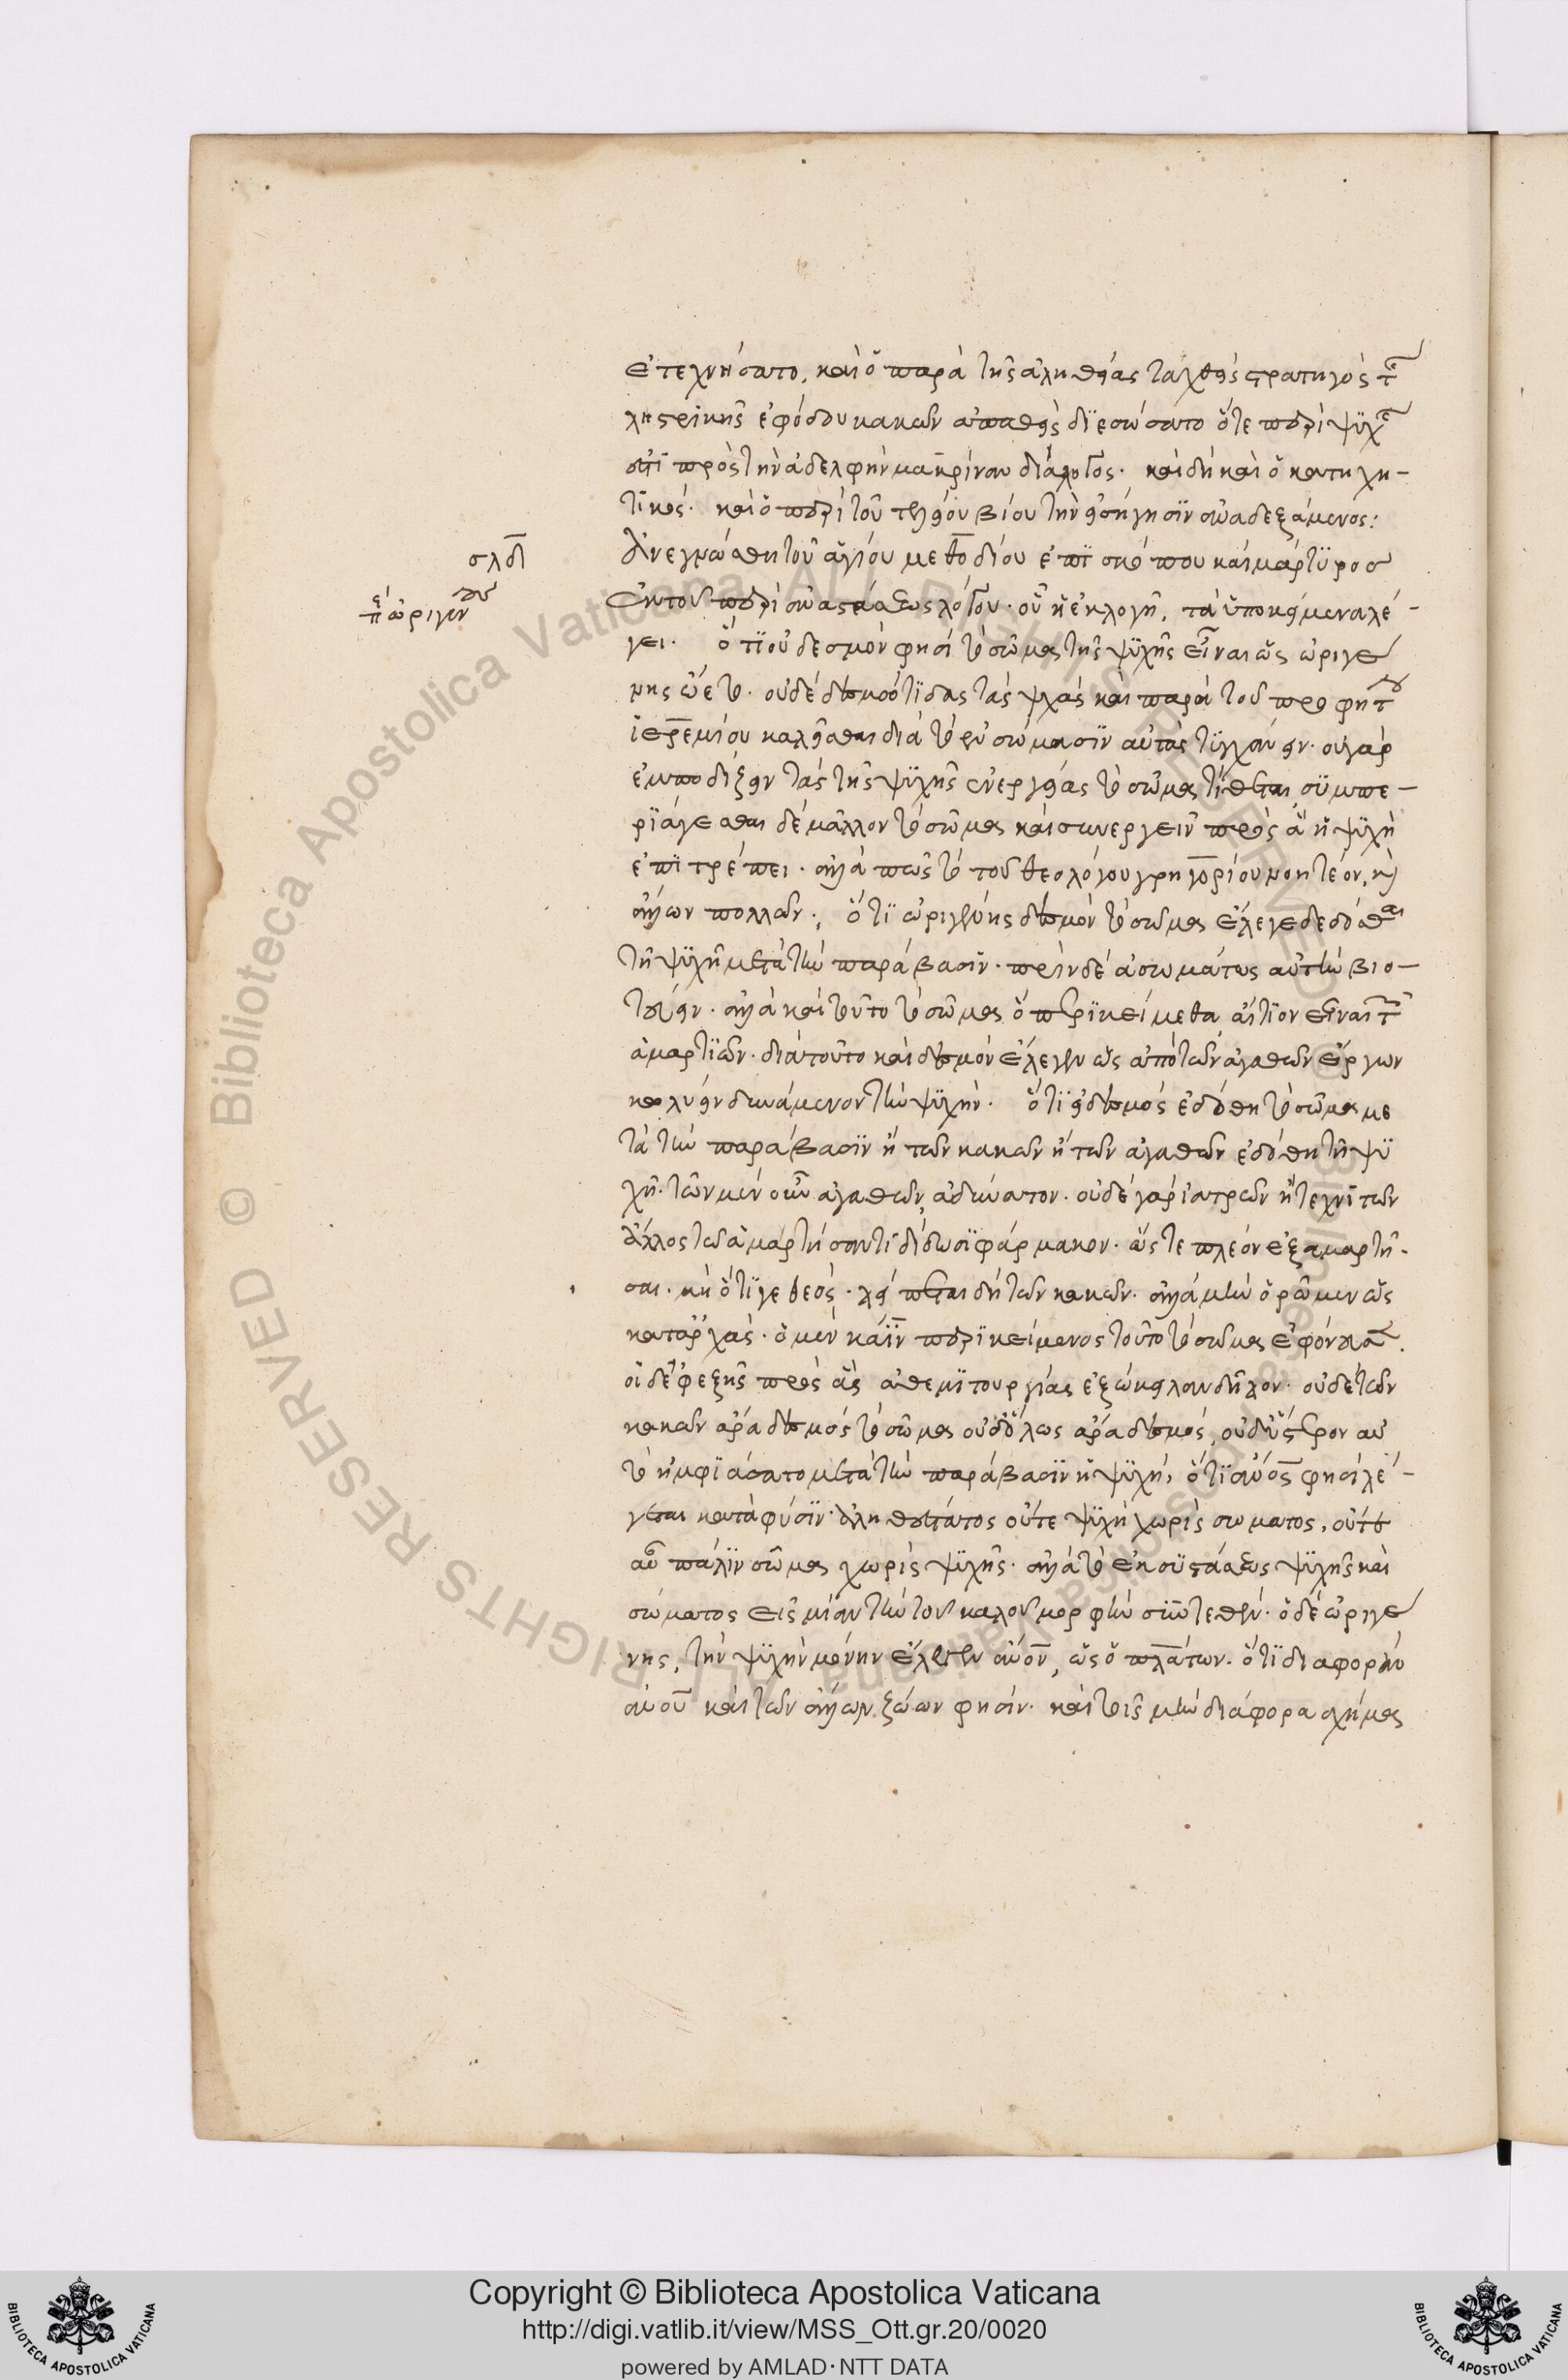 ἐτεχνήσατο, καὶ ὁ παρὰ τῆς ἀληθείας ταχθεὶς στρατηγὸς τ
λῃστρικῆς ἐφόδου κακῶν ἀπαθεῖς διεσώσατο ὅτε περὶ ψυχ
πρὸς τὴν ἀδελφὴν μακρίναν διάλογος· καὶ δὴ καὶ ὁ κατηχη-
τικός· καὶ ὁ περὶ τοῦ τελείου βίου τὴν εἰσήγησιν ἀναδεξάμενος:
σλδ
Ἀνεγνώσθη τοῦ ἁγίου μεθοδίου ἐπισκόπου καὶ μάρτυρος
π ὠριγένους
ἐκ τοῦ περὶ ἀναστάσεως λόγου· οὗ ἡ ἐκλογὴ, τὰ ὑποκείμενα λέ-
γει· ὅτι οὐ δεσμόν φησι τὸ σῶμα τῆς ψυχῆς εἶναι ὡς ὠριγέ
νης ὤετο· οὐδὲ δεσμώτιδας τὰς ψυχὰς καὶ παρὰ τοῦ προφήτου
ἱερεμίου καλεῖσθαι διὰ τὸ ἐν σώμασιν αὐτὰς τυγχάνειν· οὐ γὰρ
ἐμποδίζειν τὰς τῆς ψυχῆς ἐνεργείας τὸ σῶμα τίθεται, συμπε-
ριάγεσθαι δὲ μᾶλλον τὸ σῶμα καὶ συνεργεῖν πρὸς ἃ ἡ ψυχὴ
ἐπιτρέπει· ἀλλὰ πῶς τὸ τοῦ θεολόγου γρηγορίου νοητέον, καὶ
ἄλλων πολλῶν· ὅτι ὠριγένης δεσμὸν τὸ σῶμα ἔλεγε δεδόσθαι
τῇ ψυχῇ μετὰ τὴν παράβασιν· πρὶν δὲ ἀσωμάτως αὐτὴν βιο-
τεύειν· ἀλλὰ καὶ τοῦτο τὸ σῶμα ὃ περικείμεθα αἴτιον εἶναι τῶν
ἁμαρτιῶν· διὰ τοῦτο καὶ δεσμὸν ἔλεγεν ὡς ἀπὸ τῶν ἀγαθῶν ἔργων
κωλύειν δυνάμενον τὴν ψυχήν· ὅτι εἰ δεσμὸς ἐδόθη τὸ σῶμα με
τὰ τὴν παράβασιν ἢ τῶν κακῶν ἢ τῶν ἀγαθῶν ἐδόθη τῇ ψυ
χῇ· τῶν μὲν οὖν ἀγαθῶν, ἀδύνατον· οὐδὲ γὰρ ἰατρῶν ἢ τεχνιτῶν
ἄλλος τῶ ἁμαρτήσαντι δίδωσι φάρμακον· ὥστε πλέον ἐξαμαρτῆ-
σαι· μὴ ὅτι γε θεός· λείπεται δὴ τῶν κακῶν· ἀλλὰ μὴν ὁρῶμεν ὡς
καταρχὰς· ὁ μὲν κάϊν περικείμενος τοῦτο τὸ σῶμα ἐφόνευσε.
οἱ δἐφεξῆς πρὸς ἃς ἀθεμιτουργίας ἐξώκειλαν δῆλον· οὐδὲ τῶν
κακῶν ἄρα δεσμὸς τὸ σῶμα οὐδ' ὅλως ἄρα δεσμός, οὐδ' ὕστερον αὐ
τὸ ἠμφιάσατο μετὰ τὴν παράβασιν ἡ ψυχή, ὅτι ἄνος φησὶ λέ-
γεται κατὰ φύσιν· ἀληθέστατος οὔτε ψυχὴ χωρὶς σώματος, οὔτε
αὖ πάλιν σῶμα χωρὶς ψυχῆς· ἀλλὰ τὸ ἐκ συστάσεως ψυχῆς καὶ
σώματος εἰς μίαν τὴν τοῦ καλοῦ μορφὴν συντεθέν· ὁ δὲ ὠριγέ
νης, τὴν ψυχὴν μόνην ἔλεγεν ἄνον, ὡς ὁ πλάτων. ὅτι διαφορὰν
ἀνου καὶ τῶν ἄλλων ζώων φησίν· καὶ τοῖς μὲν διάφορα σχήμα
Copyright © Biblioteca Apostolica Vaticana
http://digi.vatlib.it/view/MSS_Ott.gr.20/0020
powered by AMLAD·NTT DATA